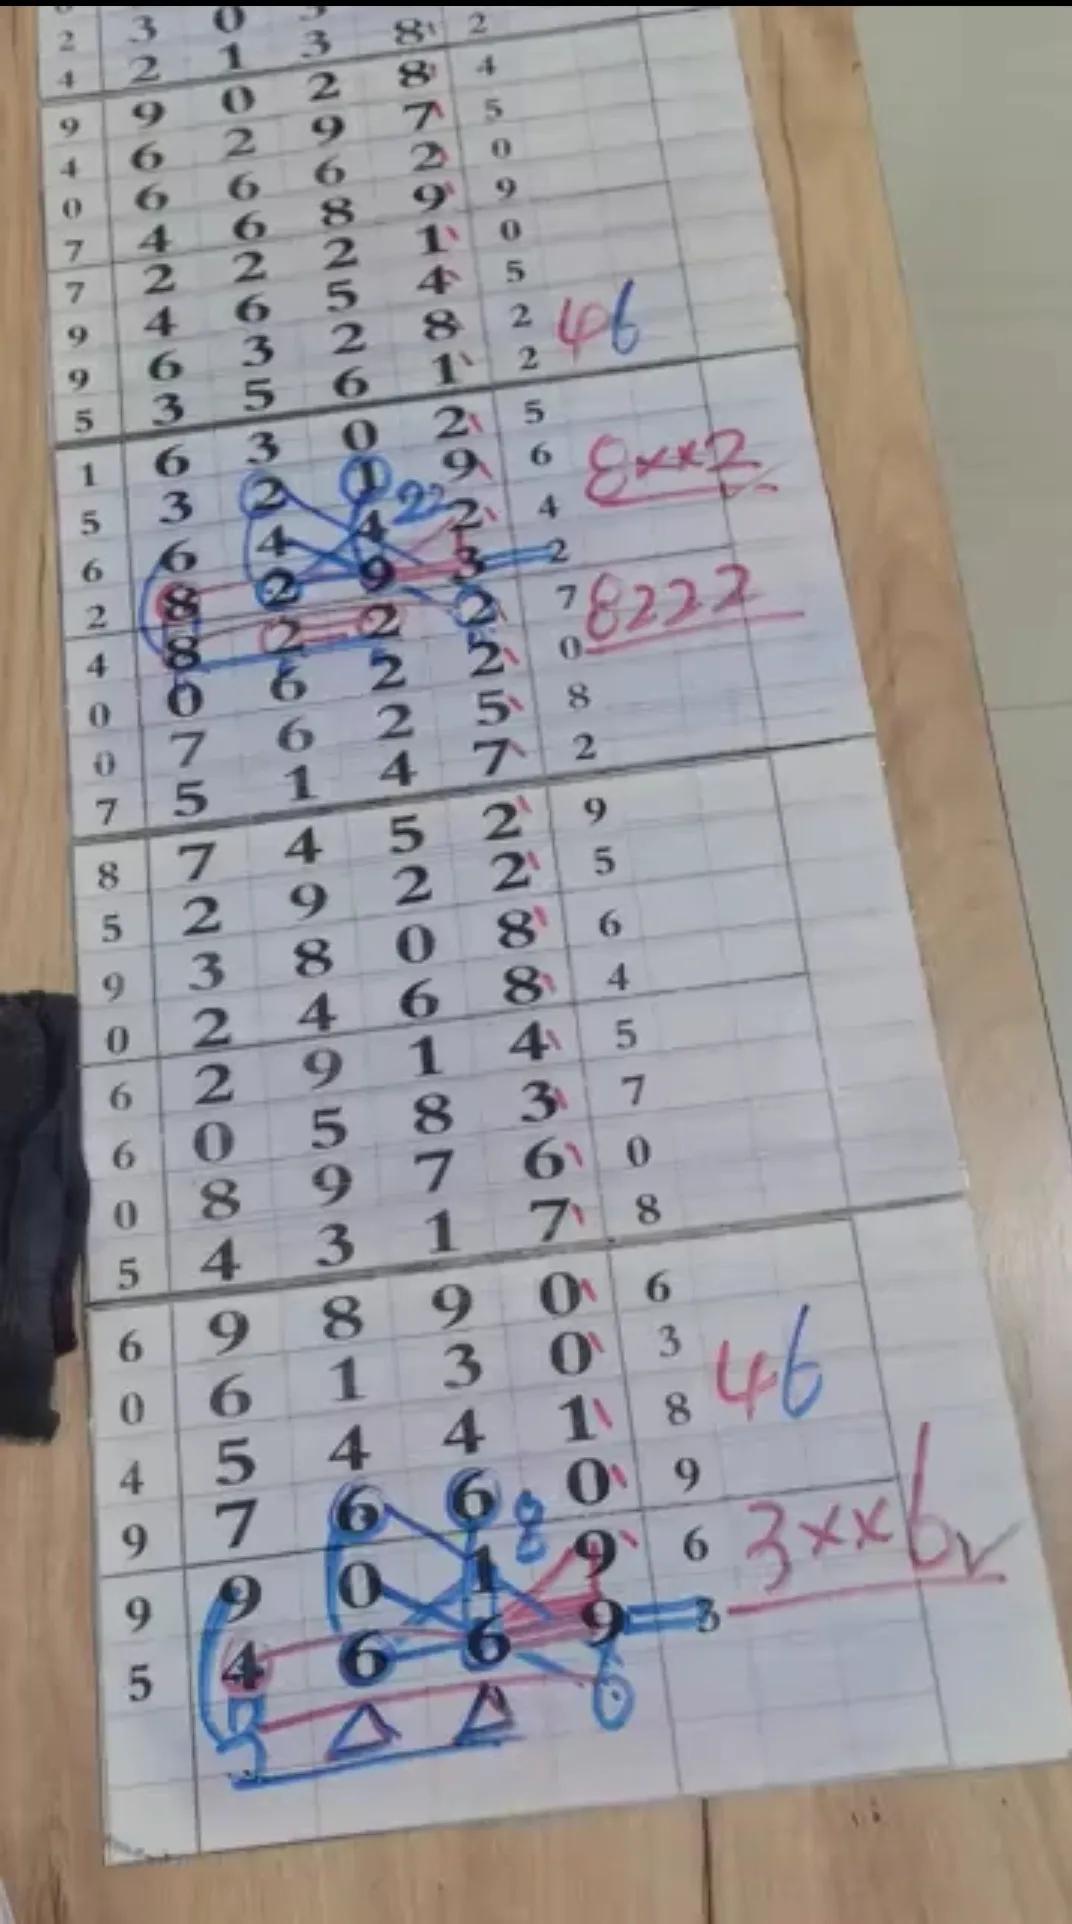 2 3 0
4 2 1 3 8 2
9 9 0 2 8 4
4 6 2 9 7 5
0 6 6 6 2 0
7 4 6 8 9 9
7 2 2 2 1 0
9 4 6 5 4 5
9 6 3 2 8 2 46
5 3 5 6 1 2
1 6 3 0 2 5
5 3 2 1 9 6 8xx2
6 6 4 4 22 2 4
2 8 2 9 3 2
4 8 2 2 2 7 8222
0 0 6 2 2 0
0 7 6 2 5 8
7 5 1 4 7 2
8 7 4 5 2 9
5 2 9 2 2 5
9 3 8 0 8 6
0 2 4 6 8 4
6 2 9 1 4 5
6 0 5 8 3 7
0 8 9 7 6 0
5 4 3 1 7 8
6 9 8 9 0 6
0 6 1 3 0 3 46
4 5 4 4 1 8
9 7 6 6 8 0 9
9 9 0 1 9 6 3xx6
5 4 6 6 9 3
6